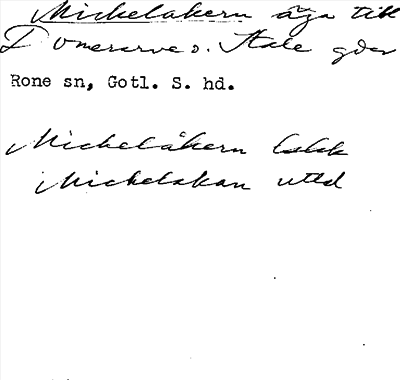 Mickelåkern äga till
Domerarve o. Stale gdar
Rone sn, Gotl. S. hd.
Mickelåkern
Mickelakan uttd